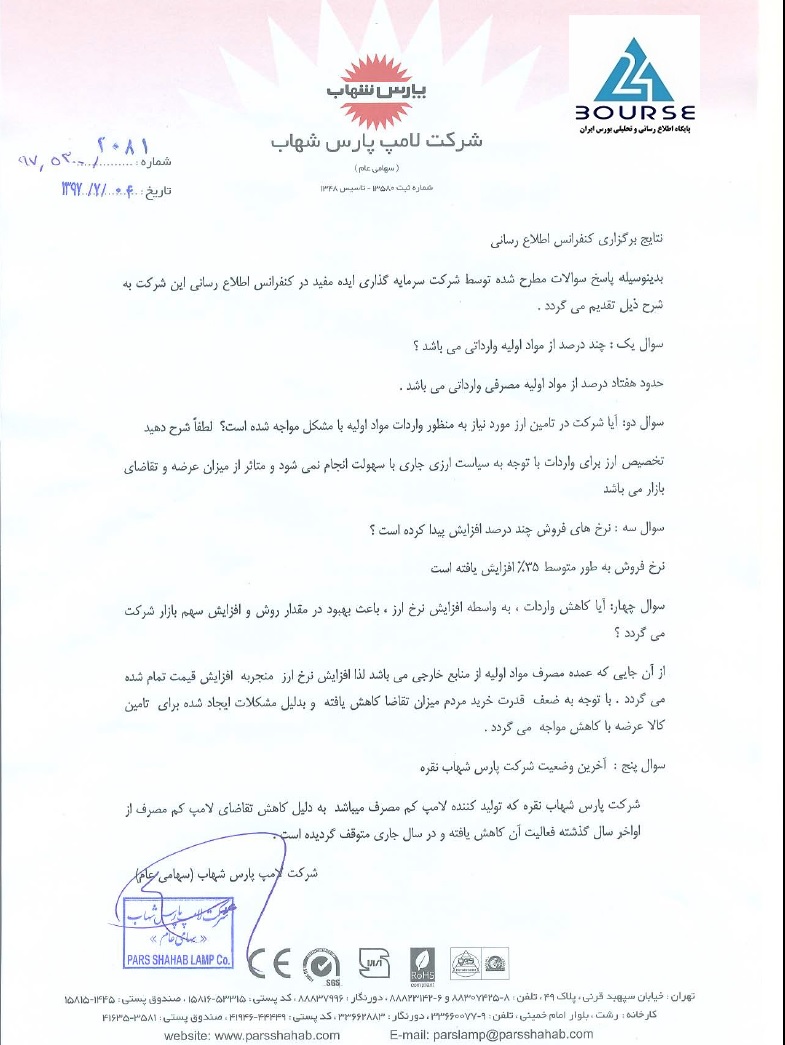 پارس شهاب
BOURSE
پایگاه اطلاع رسانی و تحلیلی بورس ایران
شرکت لامپ پارس شهاب
(سهامی عام)
شماره ثبت ۱۳۵۸۰ - تاسیس ۱۳۴۸
شماره : ۲۰۸۱
تاریخ : ۱۳۹۷/۷/۰۴
نتایج برگزاری کنفرانس اطلاع رسانی
بدینوسیله پاسخ سوالات مطرح شده توسط شرکت سرمایه گذاری ایده مفید در کنفرانس اطلاع رسانی این شرکت به
شرح ذیل تقدیم می گردد .
سوال یک : چند درصد از مواد اولیه وارداتی می باشد ؟
حدود هفتاد درصد از مواد اولیه مصرفی وارداتی می باشد .
سوال دو: آیا شرکت در تامین ارز مورد نیاز به منظور واردات مواد اولیه با مشکل مواجه شده است؟ لطفاً شرح دهید
تخصیص ارز برای واردات با توجه به سیاست ارزی جاری با سهولت انجام نمی شود و متاثر از میزان عرضه و تقاضای
بازار می باشد
سوال سه : نرخ های فروش چند درصد افزایش پیدا کرده است ؟
نرخ فروش به طور متوسط ۳۵% افزایش یافته است
سوال چهار: آیا کاهش واردات ، به واسطه افزایش نرخ ارز ، باعث بهبود در مقدار روش و افزایش سهم بازار شرکت
می گردد ؟
از آن جایی که عمده مصرف مواد اولیه از منابع خارجی می باشد لذا افزایش نرخ ارز منجربه افزایش قیمت تمام شده
می گردد . با توجه به ضعف قدرت خرید مردم میزان تقاضا کاهش یافته و بدلیل مشکلات ایجاد شده برای تامین
کالا عرضه با کاهش مواجه می گردد .
سوال پنج : آخرین وضعیت شرکت پارس شهاب نقره
شرکت پارس شهاب نقره که تولید کننده لامپ کم مصرف میباشد به دلیل کاهش تقاضای لامپ کم مصرف از
اواخر سال گذشته فعالیت آن کاهش یافته و در سال جاری متوقف گردیده است .
شرکت لامپ پارس شهاب (سهامی عام)
شرکت لامپ پارس شهاب
« سهامی عام »
PARS SHAHAB LAMP Co.
CE SGS RoHS
تهران : خیابان سپهبد قرنی ، پلاک ۴۹ ، تلفن : ۸-۸۸۳۰۷۴۲۵ و ۶-۸۸۸۲۳۱۴۲ ، دورنگار : ۸۸۸۳۷۹۹۶ ، کد پستی : ۵۳۳۱۵-۱۵۸۱۶ ، صندوق پستی : ۱۴۴۵-۱۵۸۱۵
کارخانه : رشت ، بلوار امام خمینی ، تلفن : ۹-۳۳۶۶۰۰۷۷ ، دورنگار : ۳۳۶۶۲۸۸۳ ، کد پستی : ۴۴۴۴۹-۴۱۹۴۶ ، صندوق پستی : ۳۵۸۱-۴۱۶۳۵
website: www.parsshahab.com E-mail: parslamp@parsshahab.com